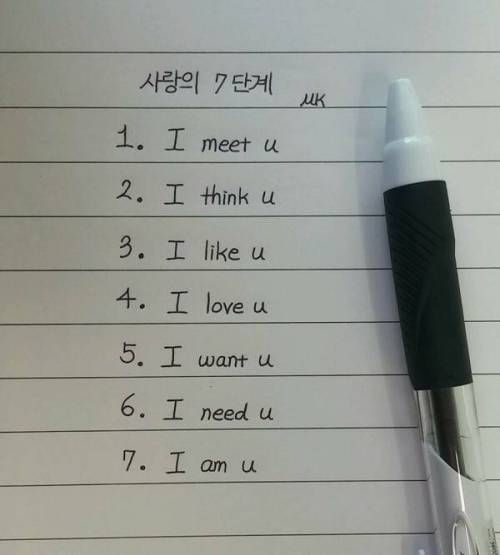 사랑의 7단계
μK
1. I meet u
2. I think u
3. I like u
4. I love u
5. I want u
6. I need u
7. I am u